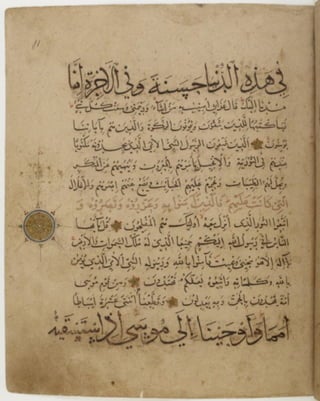 في هذه الدنيا حسنة وفي الآخرة إنا
هدنا إليك قال عذابي أصيب به من أشاء ورحمتي وسعت كل شيء
فسأكتبها للذين يتقون ويؤتون الزكوة والذين هم بآياتنا
يؤمنون الذين يتبعون الرسول النبي الأمي الذي يجدونه مكتوبا
عندهم في التورية والإنجيل يأمرهم بالمعروف وينهيهم عن المنكر
ويحل لهم الطيبات ويحرم عليهم الخبائث ويضع عنهم إصرهم والأغلال
التي كانت عليهم فالذين آمنوا به وعزروه ونصروه و
اتبعوا النور الذي أنزل معه أولئك هم المفلحون قل يا أيها
الناس إني رسول الله إليكم جميعا الذي له ملك السموات والأرض
لا إله إلا هو يحيي ويميت فآمنوا بالله ورسوله النبي الأمي الذي يؤمن
بالله وكلماته واتبعوه لعلكم تهتدون ومن قوم موسى
أمة يهدون بالحق وبه يعدلون وقطعناهم اثنتي عشرة أسباطا
أمما وأوحينا إلى موسى إذ استسقيه